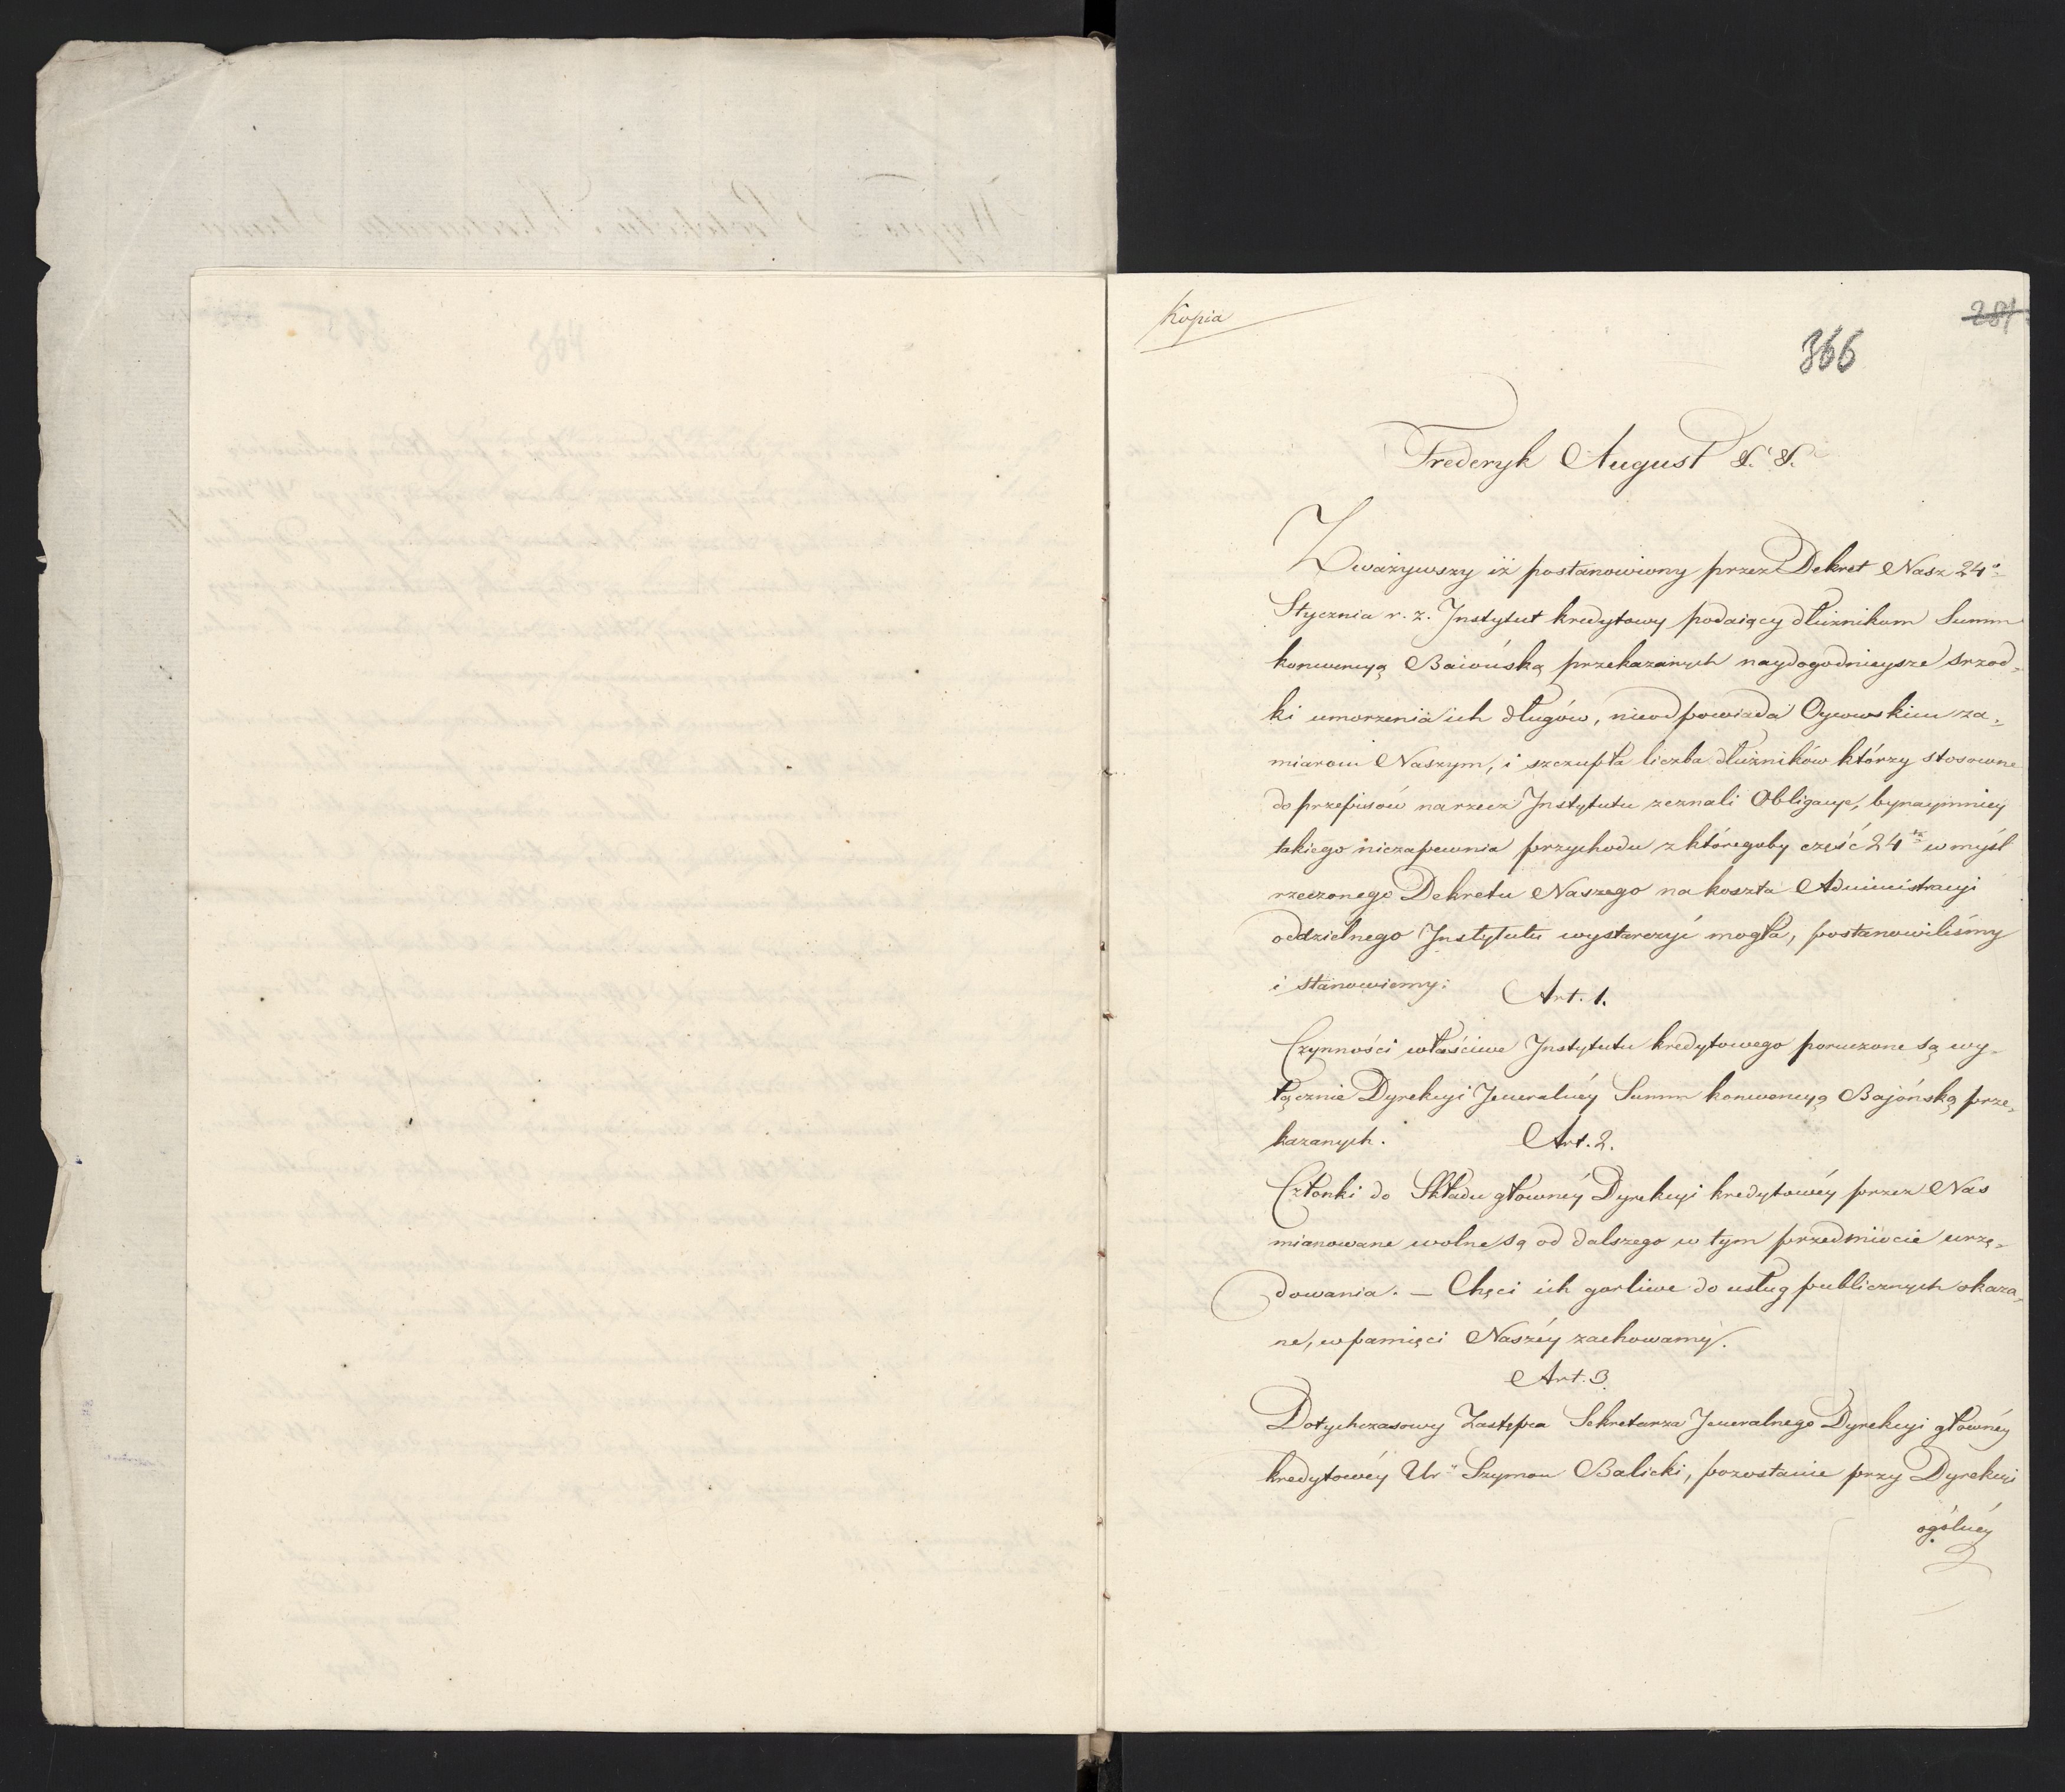 Kopia
281
366
Frederyk August &. &.
Zważywszy iż postanowiony przez Dekret Nasz 24º
Stycznia r. z. Jnstytut kredytowy podaiący dłużnikom Summ
konwencyą Baiońską przekazanych naydogodnieysze srzod-
ki umorzenia ich długów, nieodpowiada Oycowskim za-
miarom Naszym, i szczupła liczba dłużników którzy stosowne
do przepisów na rzecz Jnstytutu zeznali Obligacye, bynaymniey
takiego niezapewnia przychodu z któregoby część 24ta w myśl
rzeczonego Dekretu Naszego na koszta Administracyi
oddzielnego Jnstytutu wystarczyć mogła, postanowiliśmy
i stanowiemy:
Art. 1.
Czynności właściwe Jnstytutu kredytowego poruczone są wy-
łącznie Dyrekcyi Jeneralnéy Summ konwencyą Bajońską prze-
kazanych.
Art. 2.
Członki do Składu głownéy Dyrekcyi kredytowéy przez Nas
mianowane wolne są od dalszego w tym przedmiocie urzę-
dowania. — Chęci ich gorliwe do usług publicznych okaza-
ne, w pamięci Naszéy zachowamy.
Art. 3.
Dotychczasowy Zastępca Sekretarza Jeneralnego Dyrekcyi głownéy
kredytowéy Ur. Szymon Balicki, pozostanie przy Dyrekcyi
ogólnéy